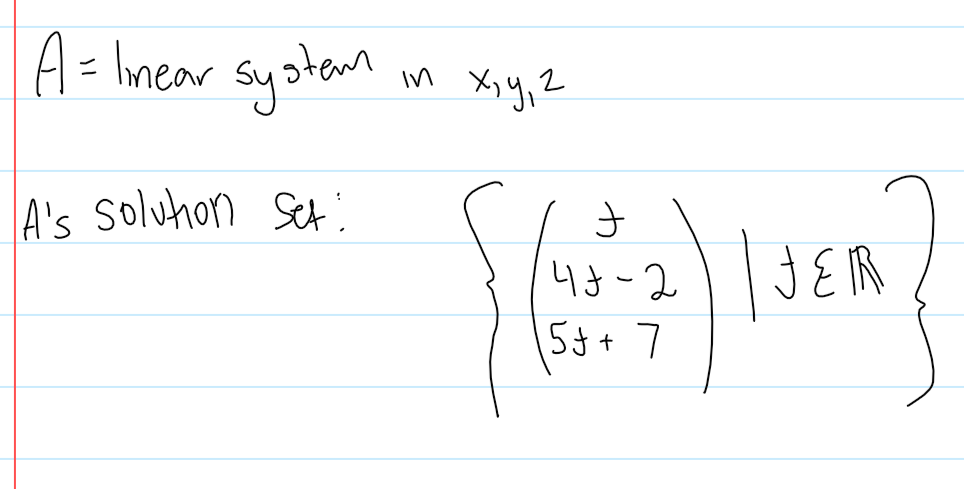 A = linear system in x, y, z
A's solution set: { ( t
4t - 2
5t + 7 ) | t ∈ ℝ }